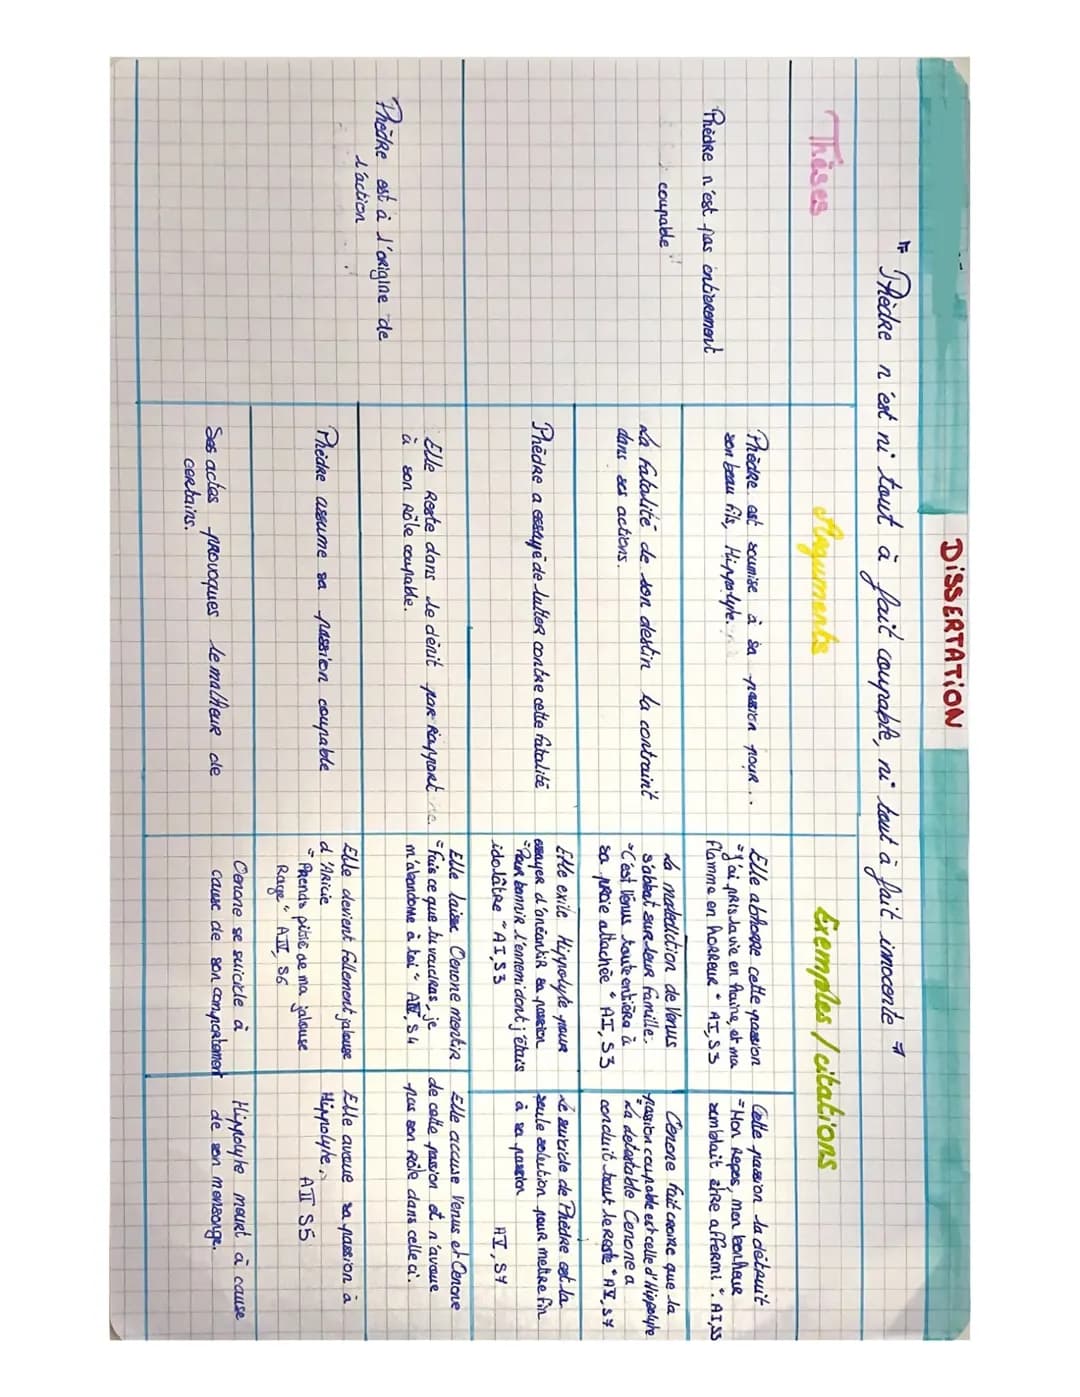 DISSERTATION
" Phèdre n'est ni tout à fait coupable, ni tout à fait innocente "
Thèses
Arguments
Exemples / citations
Phèdre n'est pas entièrement
coupable
Phèdre est soumise à sa passion pour
son beau fils, Hippolyte.
Elle abhorre cette passion
"J'ai pris la vie en haine, et ma
flamme en horreur" AI, S3
Cette passion la détruit
"Mon Repos, mon bonheur
semblait être affermi". AI, S3
La fatalité de son destin la contraint
dans ses actions.
La malediction de Venus
s'abbat sur leur famille.
"C'est Vénus toute entière à
sa proie attachée" AI, S3
Oenone fait croire que la
passion coupable est celle d'Hippolyte
"La detestable Oenone a
conduit tout le reste" AV, S7
Phèdre a essayé de lutter contre cette fatalité
Elle exile Hippolyte pour
essayer d'anéantir sa passion
"Pour bannir l'ennemi dont j'étais
idolâtre" AI, S3
Le suicide de Phèdre est la
seule solution pour mettre fin
à sa passion
AV, S7
Phèdre est à l'origine de
l'action
Elle Reste dans le dénit par Rapport
à son Rôle coupable.
Elle laisse Oenone mentir
"fais ce que tu voudras, je
m'abandonne à toi" AIV, S4
Elle accuse Venus et Oenone
de cette passion et n'avoue
pas son Rôle dans celle ci.
Phèdre assume sa passion coupable
Elle devient follement jalouse
d'Aricie
"Prends pitié de ma jalouse
Rage", AIV, S6
Elle avoue sa passion à
Hippolyte,
AII S5
Ses actes provoques le malheur de
certains.
Oenone se suicide à
cause de son comportement
Hippolyte meurt à cause
de son mensonge.